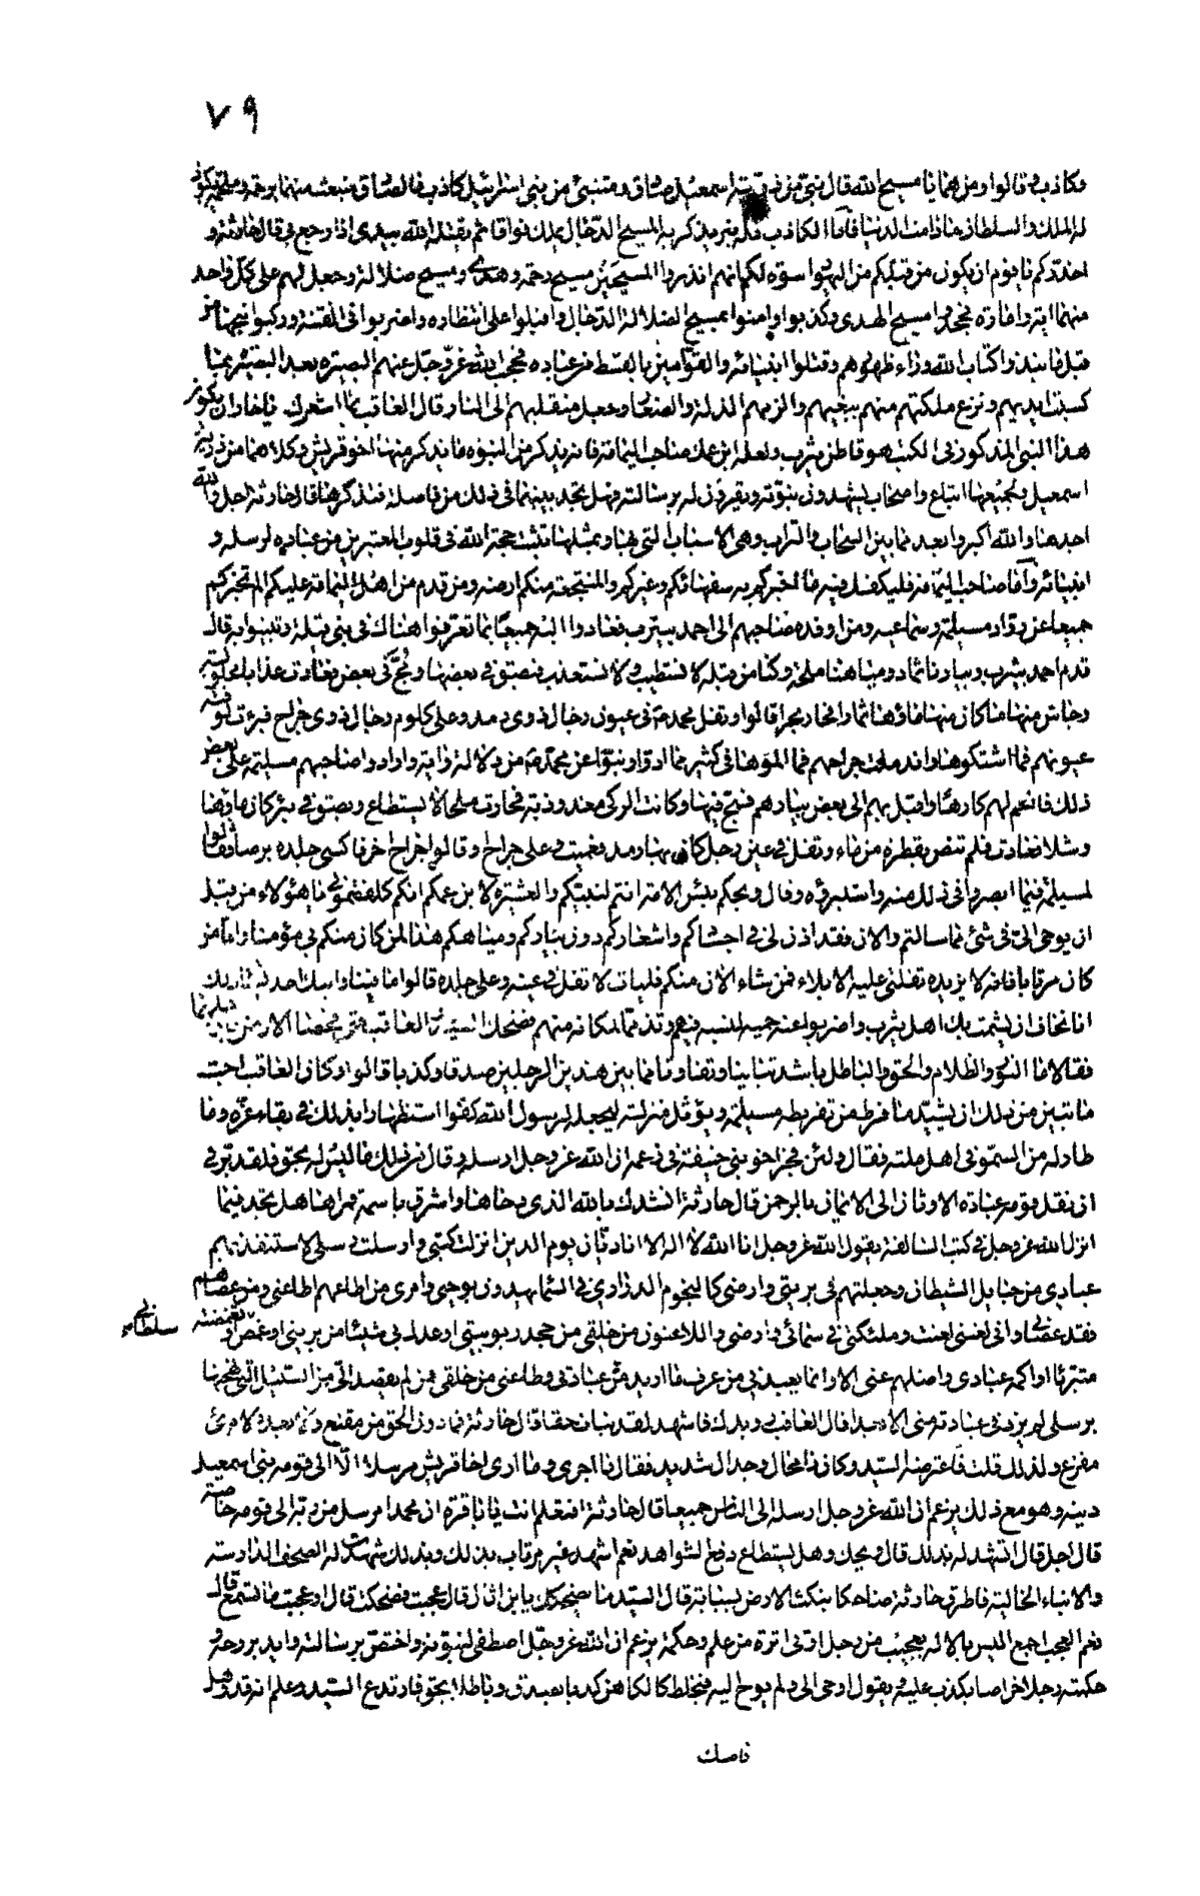 ٧٩
وكاذب قالوا ومن هما يا مسيح الله قال نبي من ذرية اسمعيل صادق ومتنبئ من بني اسرائيل كاذب فالصادق منبعث منهما برحمة وملحمة يكون
له الملك والسلطان ما دامت الدنيا واما الكاذب فله نبز يذكر به المسيح الدجال يملك فواقا ثم يقتله الله بيدي اذا رجع بي قال حارثة و
احذركم يا قوم ان يكون من قبلكم من اليهود اسوة لكم انهم انذروا المسيحين مسيح رحمة وهدى ومسيح ضلالة وجعل لهم على كل واحد
منهما اية وامارة فجحدوا مسيح الهدى وكذبوا به وامنوا بمسيح الضلالة الدجال واقبلوا على انتظاره واضربوا في الفتنة وركبوا نتجها من
قبل ما نبذوا كتاب الله وراء ظهورهم وقتلوا انبيائه والقوامين بالقسط من عباده فحجب الله عز وجل عنهم البصيرة بعد التبصرة بما
كسبت ايديهم ونزع ملكتهم منهم ببغيهم والزمهم الذلة والصغار وجعل منقلبهم الى النار قال العاقب فما اشعرك يا حار ان يكون
هذا النبي المذكور في الكتب هو قاطن يثرب ولعله ابن عمك صاحب اليمامة فانه يذكر من النبوة ما يذكر منها اخو قريش وكلاهما من ذرية
اسمعيل ولجميعهما اتباع واصحاب يشهدون بنبوته ويقرون له برسالته فهل تجد بينهما في ذلك من فاصلة فتذكرها قال حارثة اجل والله
اجدها والله اكبر وابعد مما بين السحاب والتراب وهي الاسباب التي بها وبمثلها تثبت حجة الله في قلوب المعتبرين من عباده لرسله و
انبيائه واما صاحب اليمامة فليكفك فيه ما اخبركم به سفهائكم وغيركم والمنتجعة منكم ارضه ومن قدم من اهل اليمامة عليكم الم تخبركم
جميعا عن رواد مسيلمة وسماعيه ومن اوفده صاحبهم الى احمد بيثرب فعادوا اليه جميعا بما تعرفوا هناك في بني قيلة وتبينوا به قالوا
قدم احمد يثرب وبيارنا ثماد ومياهنا ملحة وكنا من قبله لا نستطيب ولا نستعذب فبصق في بعضها ومج في بعض فعادت عذابا محلولية
وجاش منها ما كان منها ماؤها ثمادا فحار بحرا قالوا وتفل محمد في عيون رجال ذوي رمد وعلى كلوم رجال ذوي جراح فبرئت لوقته
عيونهم فما اشتكوها واندملت جراحهم فما الموها في كثير مما ادوا ونبؤا عن محمد من دلالة واية وارادوا صاحبهم مسيلمة على بعض
ذلك فانعم لهم كارها واقبل بهم الى بعض بيارهم فمج فيها وكانت الركي معذوذبة فحارت ملحا لا يستطاع وبصق في بئر كان ماؤها
وشلا فعادت فلم تبض بقطرة من ماء وتفل في عين رجل كان بها رمد فعميت وعلى جراح وقالوا جراح اخر فاكتسى جلده برصا فقالوا
لمسيلمة فيما ابصروا في ذلك منه واستبرؤه وقال ويحكم بئس الامة انتم لنبيكم والعشيرة لابن عمكم انكم كلفتموني يا هؤلاء من قبل
ان يوحى الي في شئ مما سالتم والان فقد اذن لي في اجسادكم واشعاركم دون بياركم ومياهكم هذا لمن كان منكم بي مؤمنا واما من
كان مرتابا فانه لا يزيده تفلتي عليه الا بلاء فمن شاء الان منكم فليات لا تفل في عينه وعلى جلده قالوا ما فينا وابيك احد
انا نخاف ان يشمت بك اهل يثرب واضربوا عنه حمية لنسبه فيهم وتذمما لمكانه منهم فضحك السيد والعاقب حتى فحصا الارض
فقالا ما النور والظلام والحق والباطل باشد تباينا وتفاوتا مما بين هذين الرجلين صدقا وكذبا قالوا وكان العاقب احب
ما تبين من ذلك ان يشيد ما فرط من تفريطه مسيلمة ويؤثل منزلته ليجعله لرسول الله كفوا استظهارا بذلك في بقاء عزه وما
طار له من السمو في اهل ملته فقال ولئن فجر اخو بني حنيفة في زعمه ان الله عز وجل ارسله وقال من ذلك ما ليس له بحق فلقد بر في
ان نقل قومه عبادة الاوثان الى الايمان بالرحمن قال حارثة انشدك بالله الذي دحاها واشرق باسمه قمراها هل تجد فيما
انزل الله عز وجل في كتب السالفة يقول الله عز وجل انا الله لا اله الا انا ديان يوم الدين انزلت كتبي وارسلت رسلي لاستنقذ بهم
عبادي من حبايل الشيطان وجعلتهم في بريتي وارضي كالنجوم الدراري في السماء يهدون بوحيي وامري من اطاعهم اطاعني ومن عصاهم
فقد عصاني واني لعنت وملئكتي في سمائي وارضي واللاعنون من خلقي من جحد ربوبيتي او عدل بي شيئا من بريتي او غمص
سلطاني
متبرئا او اكمه عبادي واضلهم عني الا وانما يعبدني من عرف ما اريد من عبادتي وطاعتي من خلقي فمن لم يقصد الي من السبيل التي نهجتها
برسلي لم يزدد في عبادته مني الا بعدا قال العاقب رويدك فاشهد لقد نبات حقا قال حارثة فما دون الحق من مقنع وما بعده لامرئ
مفزع ولذلك قلت فاعترضه السيد وكان ذا محال وجدال شديد فقال ما احرى وما ارى اخا قريش مرسلا الا الى قومه بني اسمعيل
دينه وهو مع ذلك يزعم ان الله عز وجل ارسله الى الناس جميعا قال حارثة افتعلم انت يا با قرة ان محمدا مرسل من ربه الى قومه خاصة
قال اجل قال اتشهد له بذلك قال ويحك وهل يستطاع دفع الشواهد نعم اشهد غير مرتاب بذلك وبذلك شهدت له الصحف الدارسة
والانباء الخالية فاطرق حارثة ضاحكا ينكت الارض بسبابته قال السيد ما يضحكك يا بن اثال قال عجبت فضحكت قال او عجبت ما تسمع قال
نعم العجب اجمع اليس بالاله بعجيب من رجل اوتي اثرة من علم وحكمة يزعم ان الله عز وجل اصطفى لنبوته واختص برسالته وايد بروحه و
حكمته رجلا خراصا يكذب عليه ويقول اوحي الي ولم يوح اليه فيخلط كالكاهن كذبا بصدق وباطلا بحق فارتدع السيد وعلم انه قد وهل
فامسك